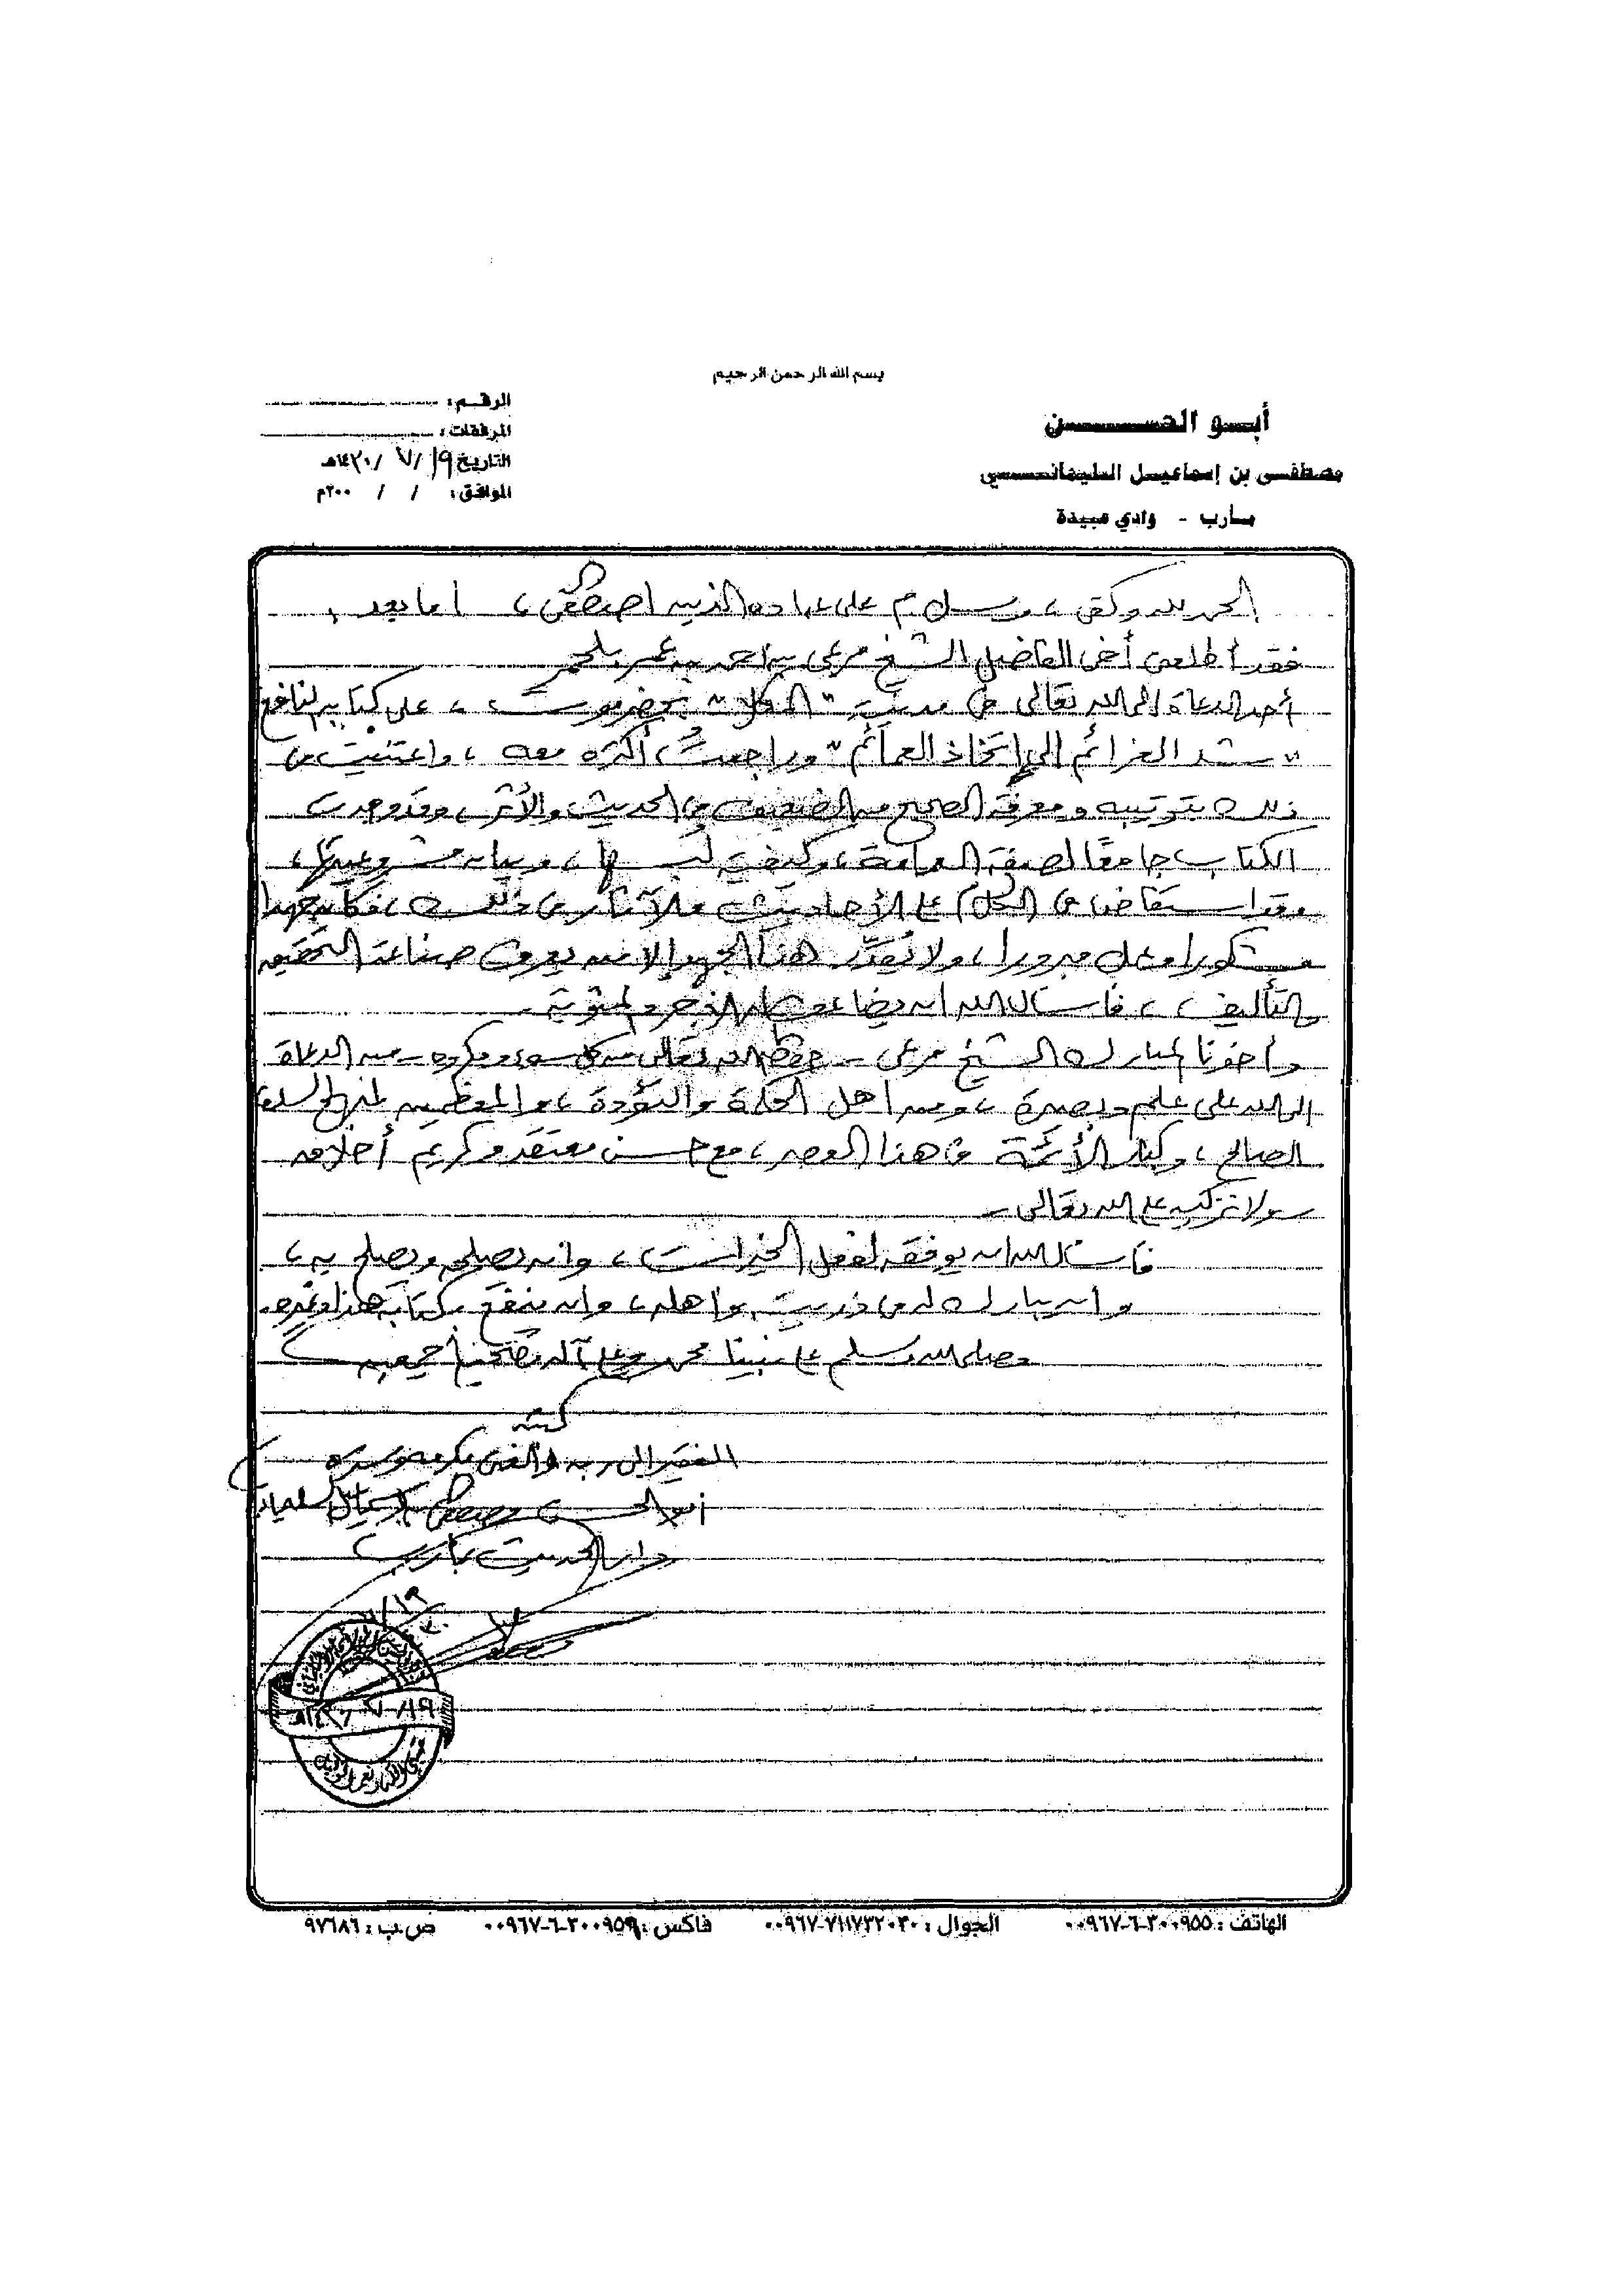 بسم الله الرحمن الرحيم
أبو الحسن
مصطفى بن إسماعيل السليماني
مأرب - وادي عبيدة
الرقم :
المرفقات :
التاريخ ١٩/ ٧/ ١٤٣٠هـ
الموافق : / / ٢٠٠م
الحمد لله وكفى، وسلام على عباده الذين اصطفى، أما بعد،
فقد أطلعني أخي الفاضل الشيخ مرعي بن أحمد بن عمر بلحمر
أحد الدعاة إلى الله تعالى في مدينة "المكلا" بحضرموت، على كتابه النافع
"شد العزائم إلى اتخاذ العمائم" وراجعت أكثره معه، واعتنيت في
ذلك بترتيبه ومعرفة الصحيح من الضعيف في الحديث والأثر، وقد وجدت
الكتاب جامعًا لصفة العمامة، وكيفية لبسها، وبيان مشروعيتها،
وقد استفاض في الكلام على الأحاديث والآثار في ذلك، فكان جهدا
مشكورا وعملا مبرورا، ولا يقدّر هذا الجهد إلا من يعرف صناعة التحقيق
والتأليف، فأسأل الله أن يضاعف له الأجر والمثوبة.
وأخونا المبارك الشيخ مرعي - حفظه الله تعالى من كل سوء ومكروه - من الدعاة
إلى الله على علم وبصيرة، ومن أهل الحكمة والتؤدة، والمعظمين لمنهج السلف
الصالح، وكبار الأئمة في هذا العصر، مع حسن معتقد وكريم أخلاق
- ولا نزكيه على الله تعالى -
فأسأل الله أن يوفقه لفعل الخيرات، وأن يصلحه ويصلح به،
وأن يبارك له في ذريته وأهله، وأن ينفع بكتابه هذا وغيره.
وصلى الله وسلم على نبينا محمد وعلى آله وصحبه أجمعين
كتبه
الفقير إلى ربه والغني بكرمه وستره
أبو الحسن مصطفى بن إسماعيل السليماني
دار الحديث بمأرب
١٩/ ٧/
١٩/ ٧/ ١٤٣٠هـ
الهاتف : ٣٠٠٩٥٥-٦-٠٠٩٦٧
الجوال : ٧١١٧٣٢٠٣٠-٠٠٩٦٧
فاكس : ٣٠٠٩٥٩-٦-٠٠٩٦٧
ص.ب : ٩٧٦٨٦